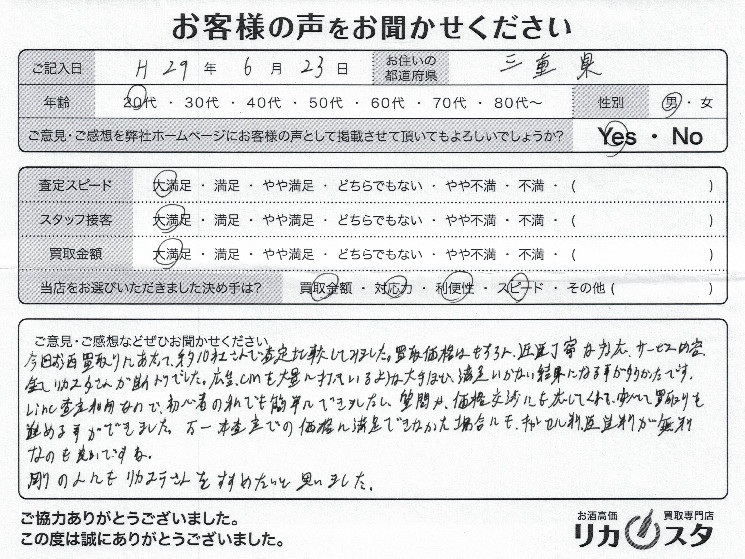 お客様の声をお聞かせください
ご記入日 H 29 年 6 月 23 日 お住いの都道府県 三重県
年齢 20代 ・ 30代 ・ 40代 ・ 50代 ・ 60代 ・ 70代 ・ 80代〜 性別 男 ・ 女
ご意見・ご感想を弊社ホームページにお客様の声として掲載させて頂いてもよろしいでしょうか? Yes ・ No
査定スピード 大満足 ・ 満足 ・ やや満足 ・ どちらでもない ・ やや不満 ・ 不満 ・ ( )
スタッフ接客 大満足 ・ 満足 ・ やや満足 ・ どちらでもない ・ やや不満 ・ 不満 ・ ( )
買取金額 大満足 ・ 満足 ・ やや満足 ・ どちらでもない ・ やや不満 ・ 不満 ・ ( )
当店をお選びいただきました決め手は? 買取金額 ・ 対応力 ・ 利便性 ・ スピード ・ その他 ( )
ご意見・ご感想などぜひお聞かせください
今回お酒買取りにあたって、約10社さんで査定比較してみました。買取価格はもちろん、返送丁寧な対応、サービス内容、
全てリカスタさんが断トツでした。広告、CMを大量に打っているような大手ほど、満足いかない結果になる事が多かったです。
Line査定利用なので、初心者の私でも簡単にできましたし、質問や、価格交渉にも応じてくれて、安心して買取りを
進める事ができました。万一本査定での価格に満足できなかった場合にも、キャンセル料、返送料が無料
なのも良いですね。
の人にもリカスタさんをすすめたいと思いました。
ご協力ありがとうございました。
この度は誠にありがとうございました。
お酒高価 買取専門店
リカスタ